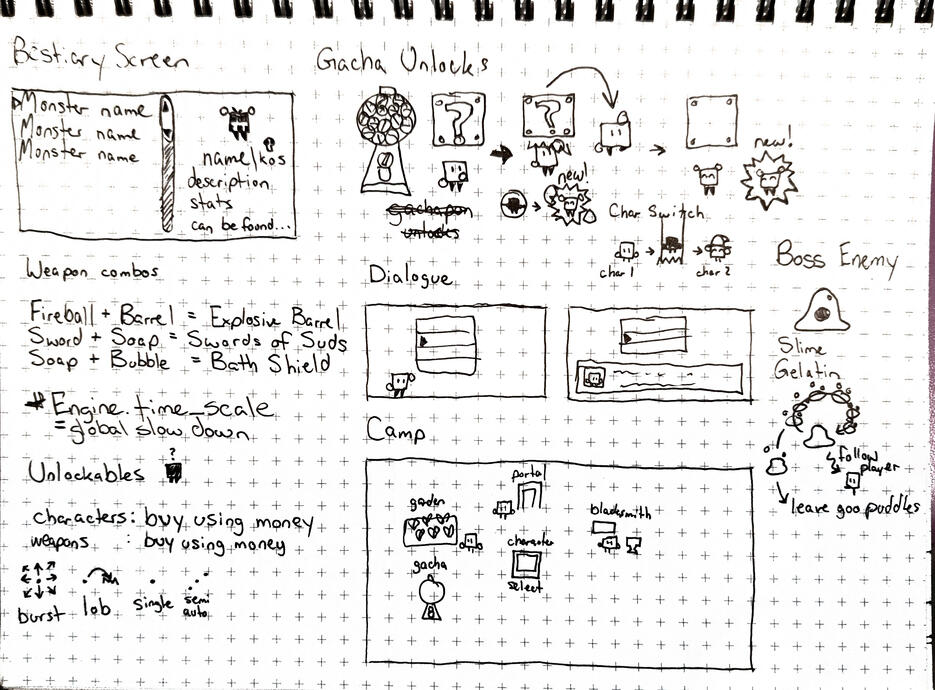 Bestiary Screen
Monster name
Monster name
Monster name
name/kos
description
stats
can be found...
Weapon combos
Fireball + Barrel = Explosive Barrel
Sword + Soap = Swords of Suds
Soap + Bubble = Bath Shield
* Engine.time_scale
= global slow down
Unlockables
?
characters: buy using money
weapons : buy using money
burst
lob
single
semi
auto
Gacha Unlocks
?
?
new!
new!
gachapon
unlocks
Char Switch
char 1
char 2
Dialogue
Camp
portal
gaden
blacksmith
character
select
gacha
Boss Enemy
Slime
Gelatin
follow
player
leave goo puddles